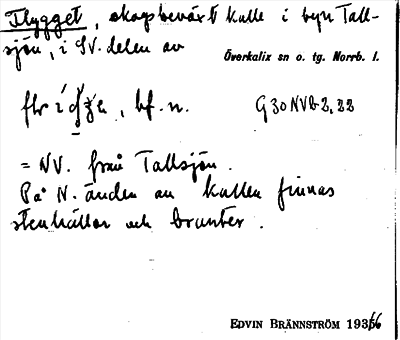 Flygget, skogsbeväxt kulle i byn Tall-
sjön, i SV. delen av
Överkalix sn o. tg. Norrb. l.
bf. n. G30NVb2,22
= NV. från Tallsjön.
På N. änden av kullen finnas
stenhällor och branter.
EDVIN BRÄNNSTRÖM 1936